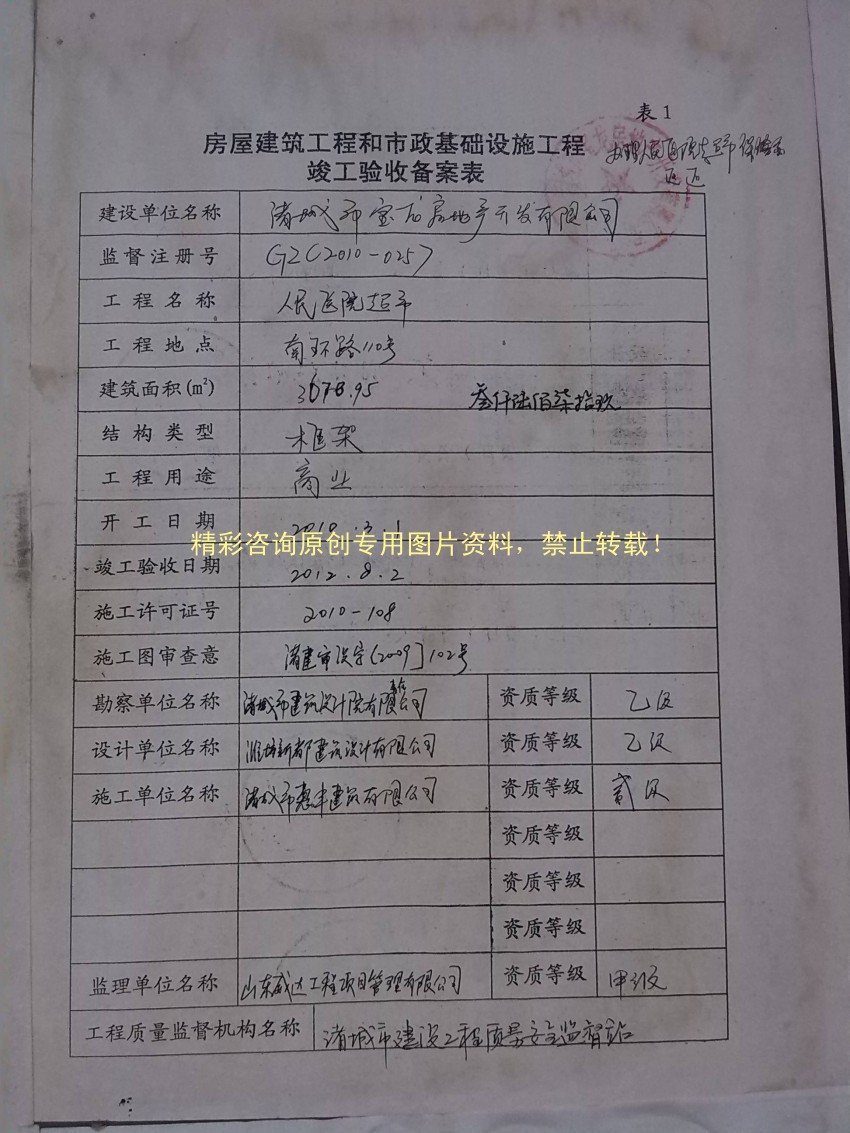 表1
房屋建筑工程和市政基础设施工程
竣工验收备案表
办理人民医院超市
建设单位名称 诸城市宝龙房地产开发有限公司
监督注册号 GZC2010-025
工程名称 人民医院超市
工程地点 南环路110号
建筑面积(m²) 3678.95 叁仟陆佰柒拾玖
结构类型 框架
工程用途 商业
开工日期 2010.3.1
精彩咨询原创专用图片资料，禁止转载！
竣工验收日期 2012.8.2
施工许可证号 2010-108
施工图审查意 诸建审设字(2009]102号
勘察单位名称 诸城市建筑设计院有限公司 资质等级 乙级
设计单位名称 潍坊新都建筑设计有限公司 资质等级 乙级
施工单位名称 诸城市惠丰建筑有限公司 资质等级 贰级
资质等级
资质等级
资质等级
监理单位名称 山东威达工程项目管理有限公司 资质等级 甲级
工程质量监督机构名称 诸城市建设工程质量安全监督站